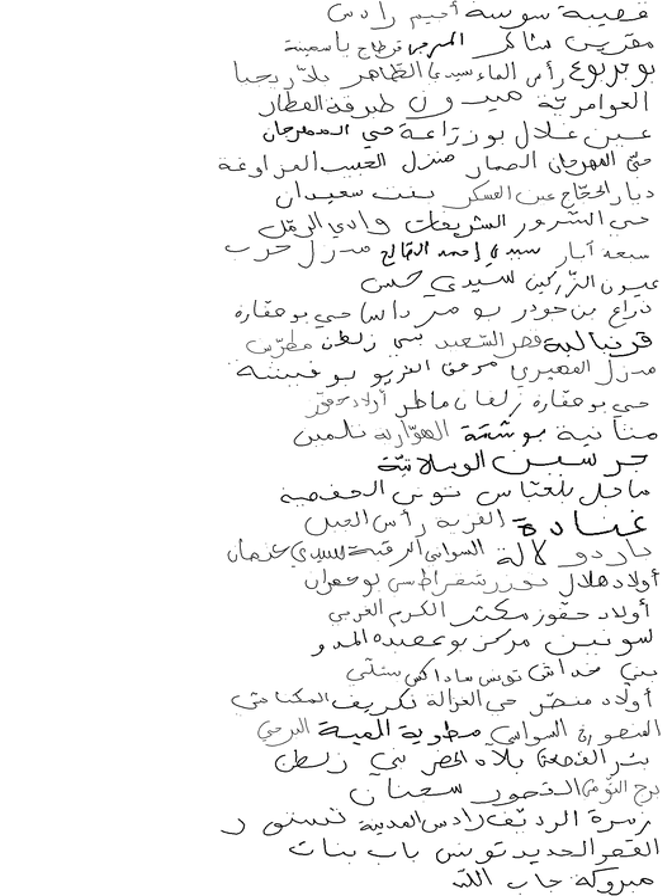 قصيبة سوسة أجيم رادس
مقرين شاكر المرجى قرطاج ياسمينة
بوجربوع رأس الماء سيدي الظاهر بلاريجيا
العوامرية ميدون طبرقة العطار
عين غلال بوزراعة حي المهرجان
حي المهرجان الصمار منزل الحبيب المزاوغة
ديار الحجاج عين العسكر بنت سعيدان
حي السرور الشريفات وادي الرمل
سبعة آبار سيدي أحمد الصالح منزل حرب
عيون الزركين سيدي حسن
ذراع بن جودر بومرداس حي بوحفارة
قرنبالية قصر السعيد بني زلطن مطرين
منزل المهيري مرفق الغريو بوفيشة
حي بوحفارة زلفان ماطر أولاد حفوز
متانية بوشمة الهوارية تلمين
جرسين الوسلاتية
ماجل بلعباس تونس الحفصية
غنادة القرية رأس الجبل
باردو لالة السواسي الرقبة سيدي عثمان
أولاد هلال توزر شقراطسي بوجعران
أولاد حفوز مكثر الكرم الغربي
لسونين مركز بوعصيدة المدو
بني خداش تونس ستلي
أولاد منصر حي الغزالة تكريف المكناسي
المنصورة السواسي مطوية المحبة البرجي
بئر القصعة بلاد الحضر بني زلطن
برج التومي القحور سجنان
زسرة الرديف رادس المدينة تستور
القصر الحديد تونس باب بنات
مبروكة جاب الله